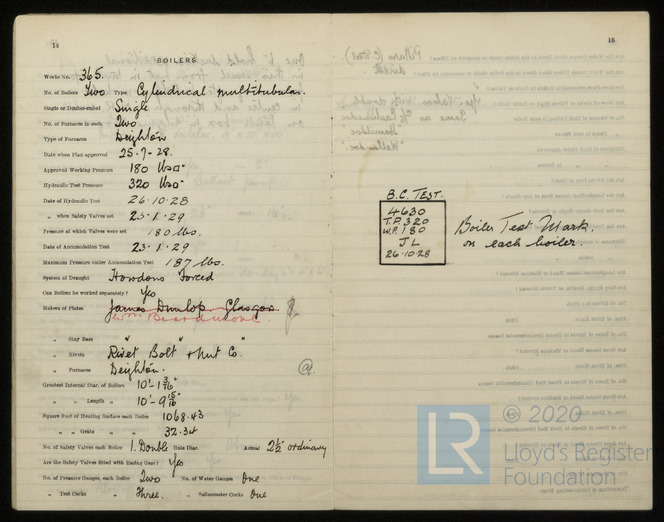 14
BOILERS.
Works No. 365.
No. of Boilers Two Type Cylindrical multitubular.
Single or Double-ended Single
No. of Furnaces in each Two
Type of Furnaces Deighton
Date when Plan approved 25-7-28.
Approved Working Pressure 180 lbs
Hydraulic Test Pressure 320 lbs
Date of Hydraulic Test 26-10-28
„ when Safety Valves set 23.1.29
Pressure at which Valves were set 180 lbs.
Date of Accumulation Test 23.1.29
Maximum Pressure under Accumulation Test 187 lbs.
System of Draught Howdons Forced
Can Boilers be worked separately? Yes
Makers of Plates James Dunlop Glasgow.
Beardmore.
„ Stay Bars „ „ „
„ Rivets Rivet Bolt & Nut Co.
„ Furnaces Deighton.
Greatest Internal Diam. of Boilers 10'- 1 3/16"
„ „ Length „ 10'- 9 15/16"
Square Feet of Heating Surface each Boiler 1068.43
„ „ Grate „ „ 32.34
No. of Safety Valves each Boiler 1. Double Rule Diam. Actual 2½" ordinary
Are the Safety Valves fitted with Easing Gear? Yes
No. of Pressure Gauges, each Boiler Two No. of Water Gauges One
„ Test Cocks „ Three. „ Salinometer Cocks One
15
B.C. TEST.
4630
T.P. 320
W.P. 180
JL
26-10-28
Boiler Test Mark.
on each boiler.
© 2020
LR
Lloyd's Register
Foundation